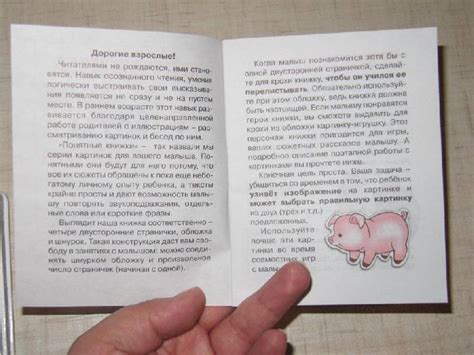 Дорогие взрослые!
Читателями не рождаются, ими стано-
вятся. Навык осознанного чтения, умения
логически выстраивать свои высказыва-
ния появляется не сразу и не на пустом
месте. В раннем возрасте этот навык раз-
вивается благодаря целенаправленной
работе родителей с иллюстрацией – рас-
сматриванию картинок и бесед по ним.
«Понятные книжки» – так назвали мы
серии картинок для вашего малыша. По-
нятными они будут для него потому, что
все их сюжеты обращены к пока ещё небо-
гатому личному опыту ребёнка, а тексты
крайне просты и дают возможность малы-
шу повторять звукоподражания, отдель-
ные слова или короткие фразы.
Выглядит наша книжка соответственно –
четыре двусторонние странички, обложка
и шнурок. Такая конструкция даст вам сво-
боду в занятиях с малышом: можно соеди-
нять шнурком обложку и произвольное
число страничек (начиная с одной).
Когда малыш познакомится хотя бы с
одной двусторонней страничкой, сделай-
те для крохи книжку, чтобы он учился её
перелистывать. Обязательно используй-
те при этом обложку, ведь книжка должна
быть настоящей. Если малышу понравятся
герои книжки, вы сможете вырезать для
крохи из обложки картинку-игрушку. Этот
персонаж книжки пригодится для игры,
ваших сюжетных рассказов малышу. А
подробное описание поэтапной работы с
картинками вы прочтёте ниже.
Конечная цель проста. Ваша задача –
убедиться со временем в том, что ребёнок
узнаёт изображение на картинке и
может выбрать правильную картинку
из двух (трех и т.д.)
предложенных.
Используйте
почаще эти кар-
тинки во время
совместных игр
с малы